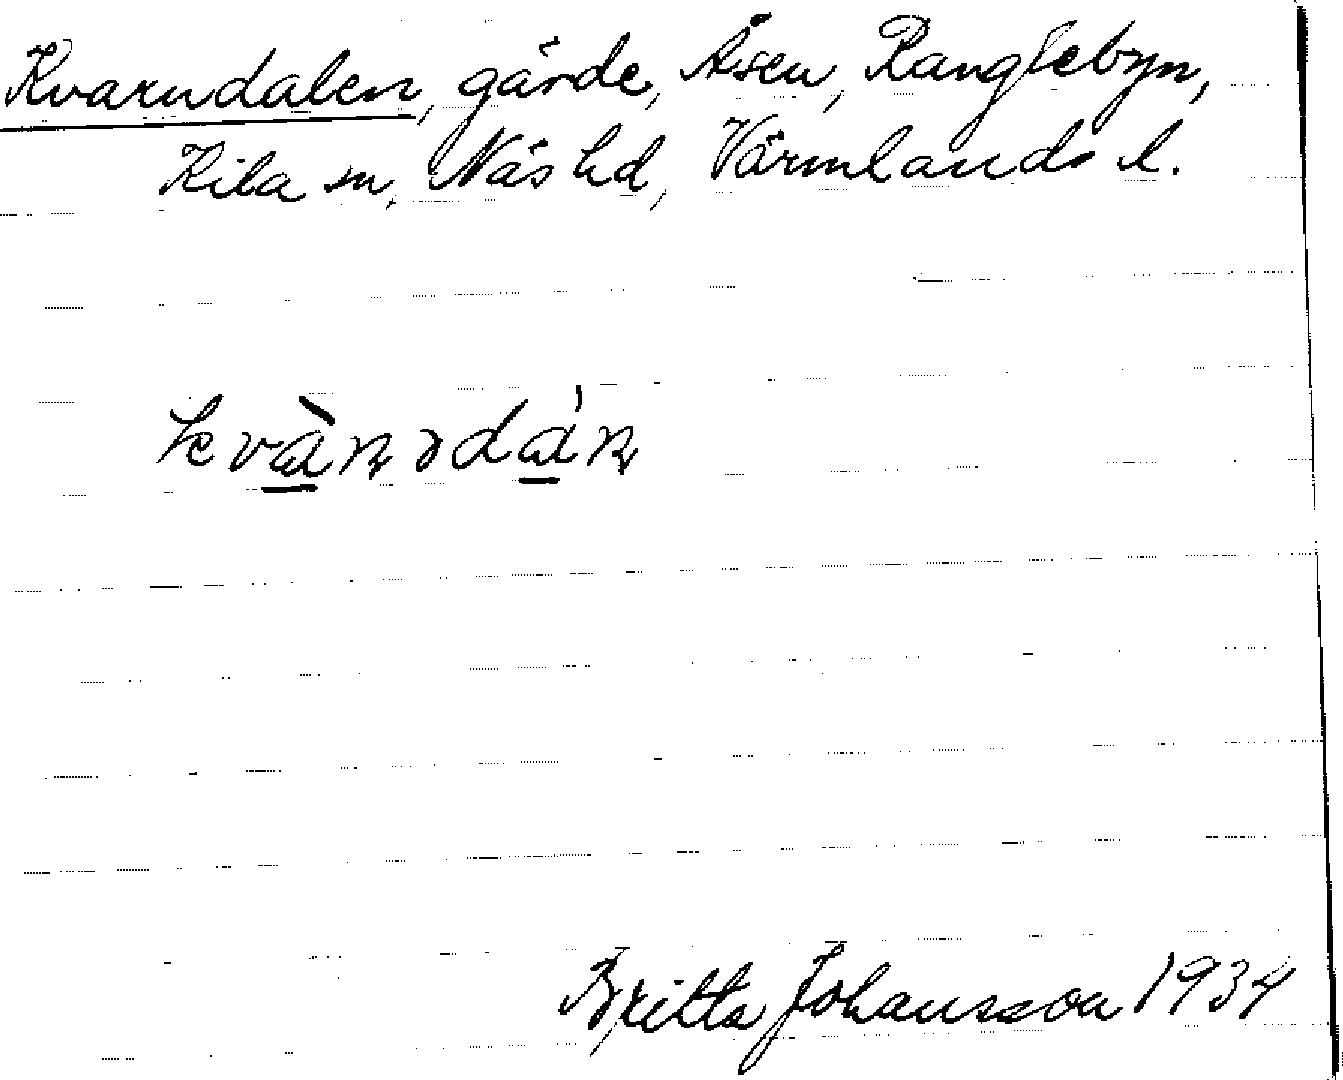 Kvarndalen, gärde, Åsen, Ranglebyn,
Kila sn, Näs hd, Värmlands l.
kvàṇədáṇ
Britta Johansson 1934